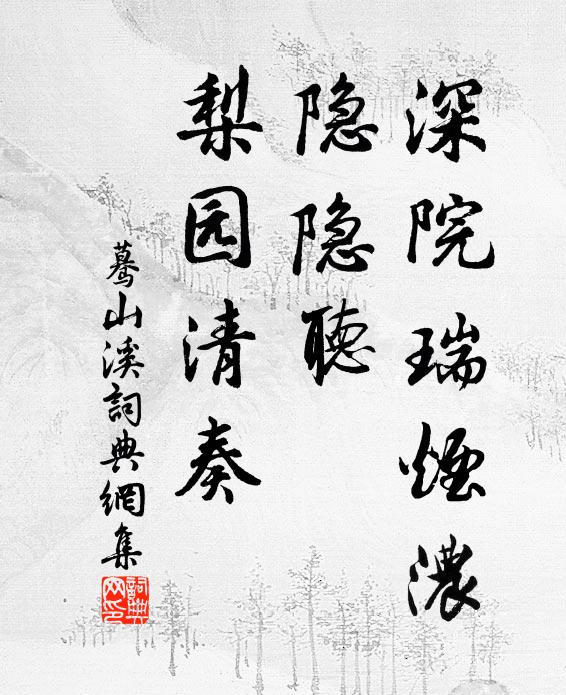 深院瑞煙濃
隐隐聽
梨园清奏
蓦山溪詞典網集
詞典网印